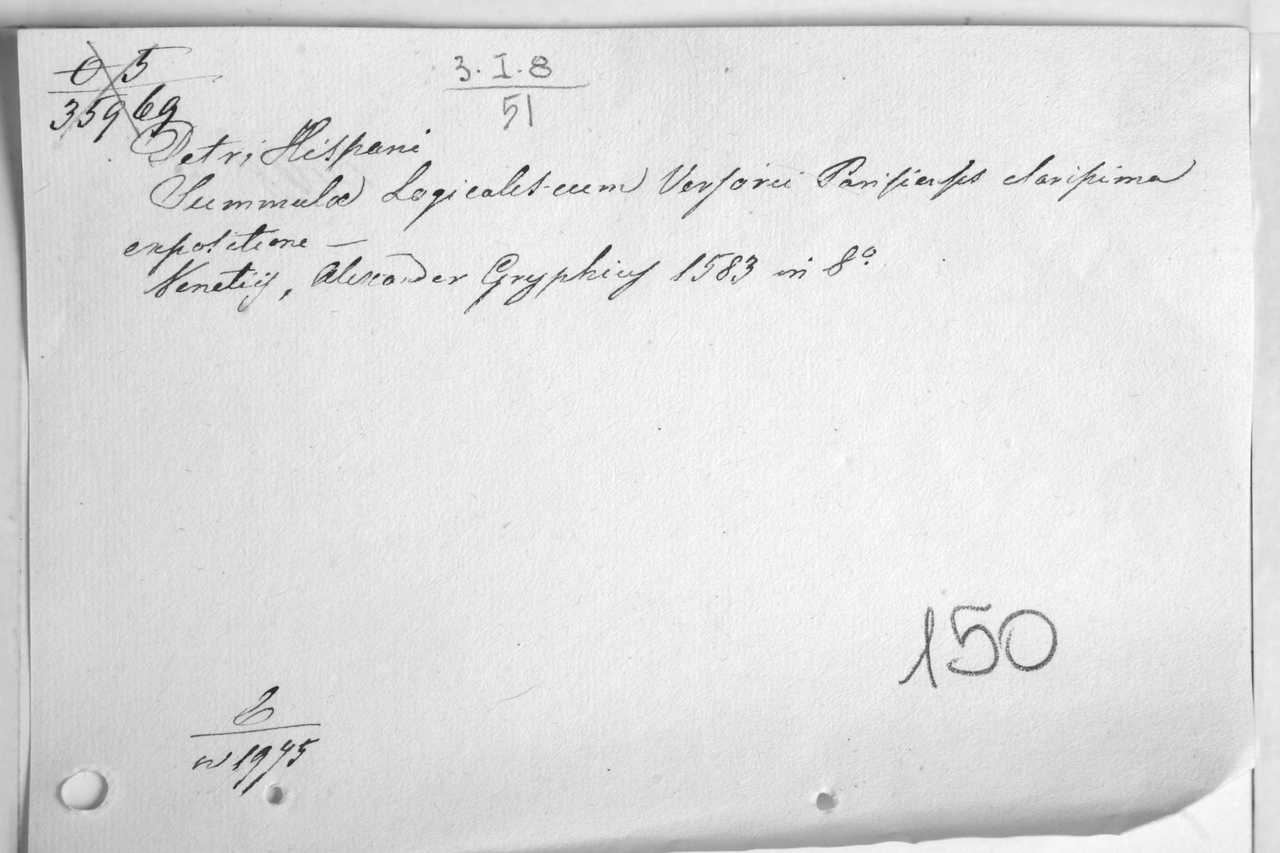 O 5
359 69
3. I. 8
51
Petri Hispani
Summulæ Logicales cum Versorii Parisiensis clarissima
expositione —
Venetijs, Alexander Gryphius 1583 in 8º
150
n 1975